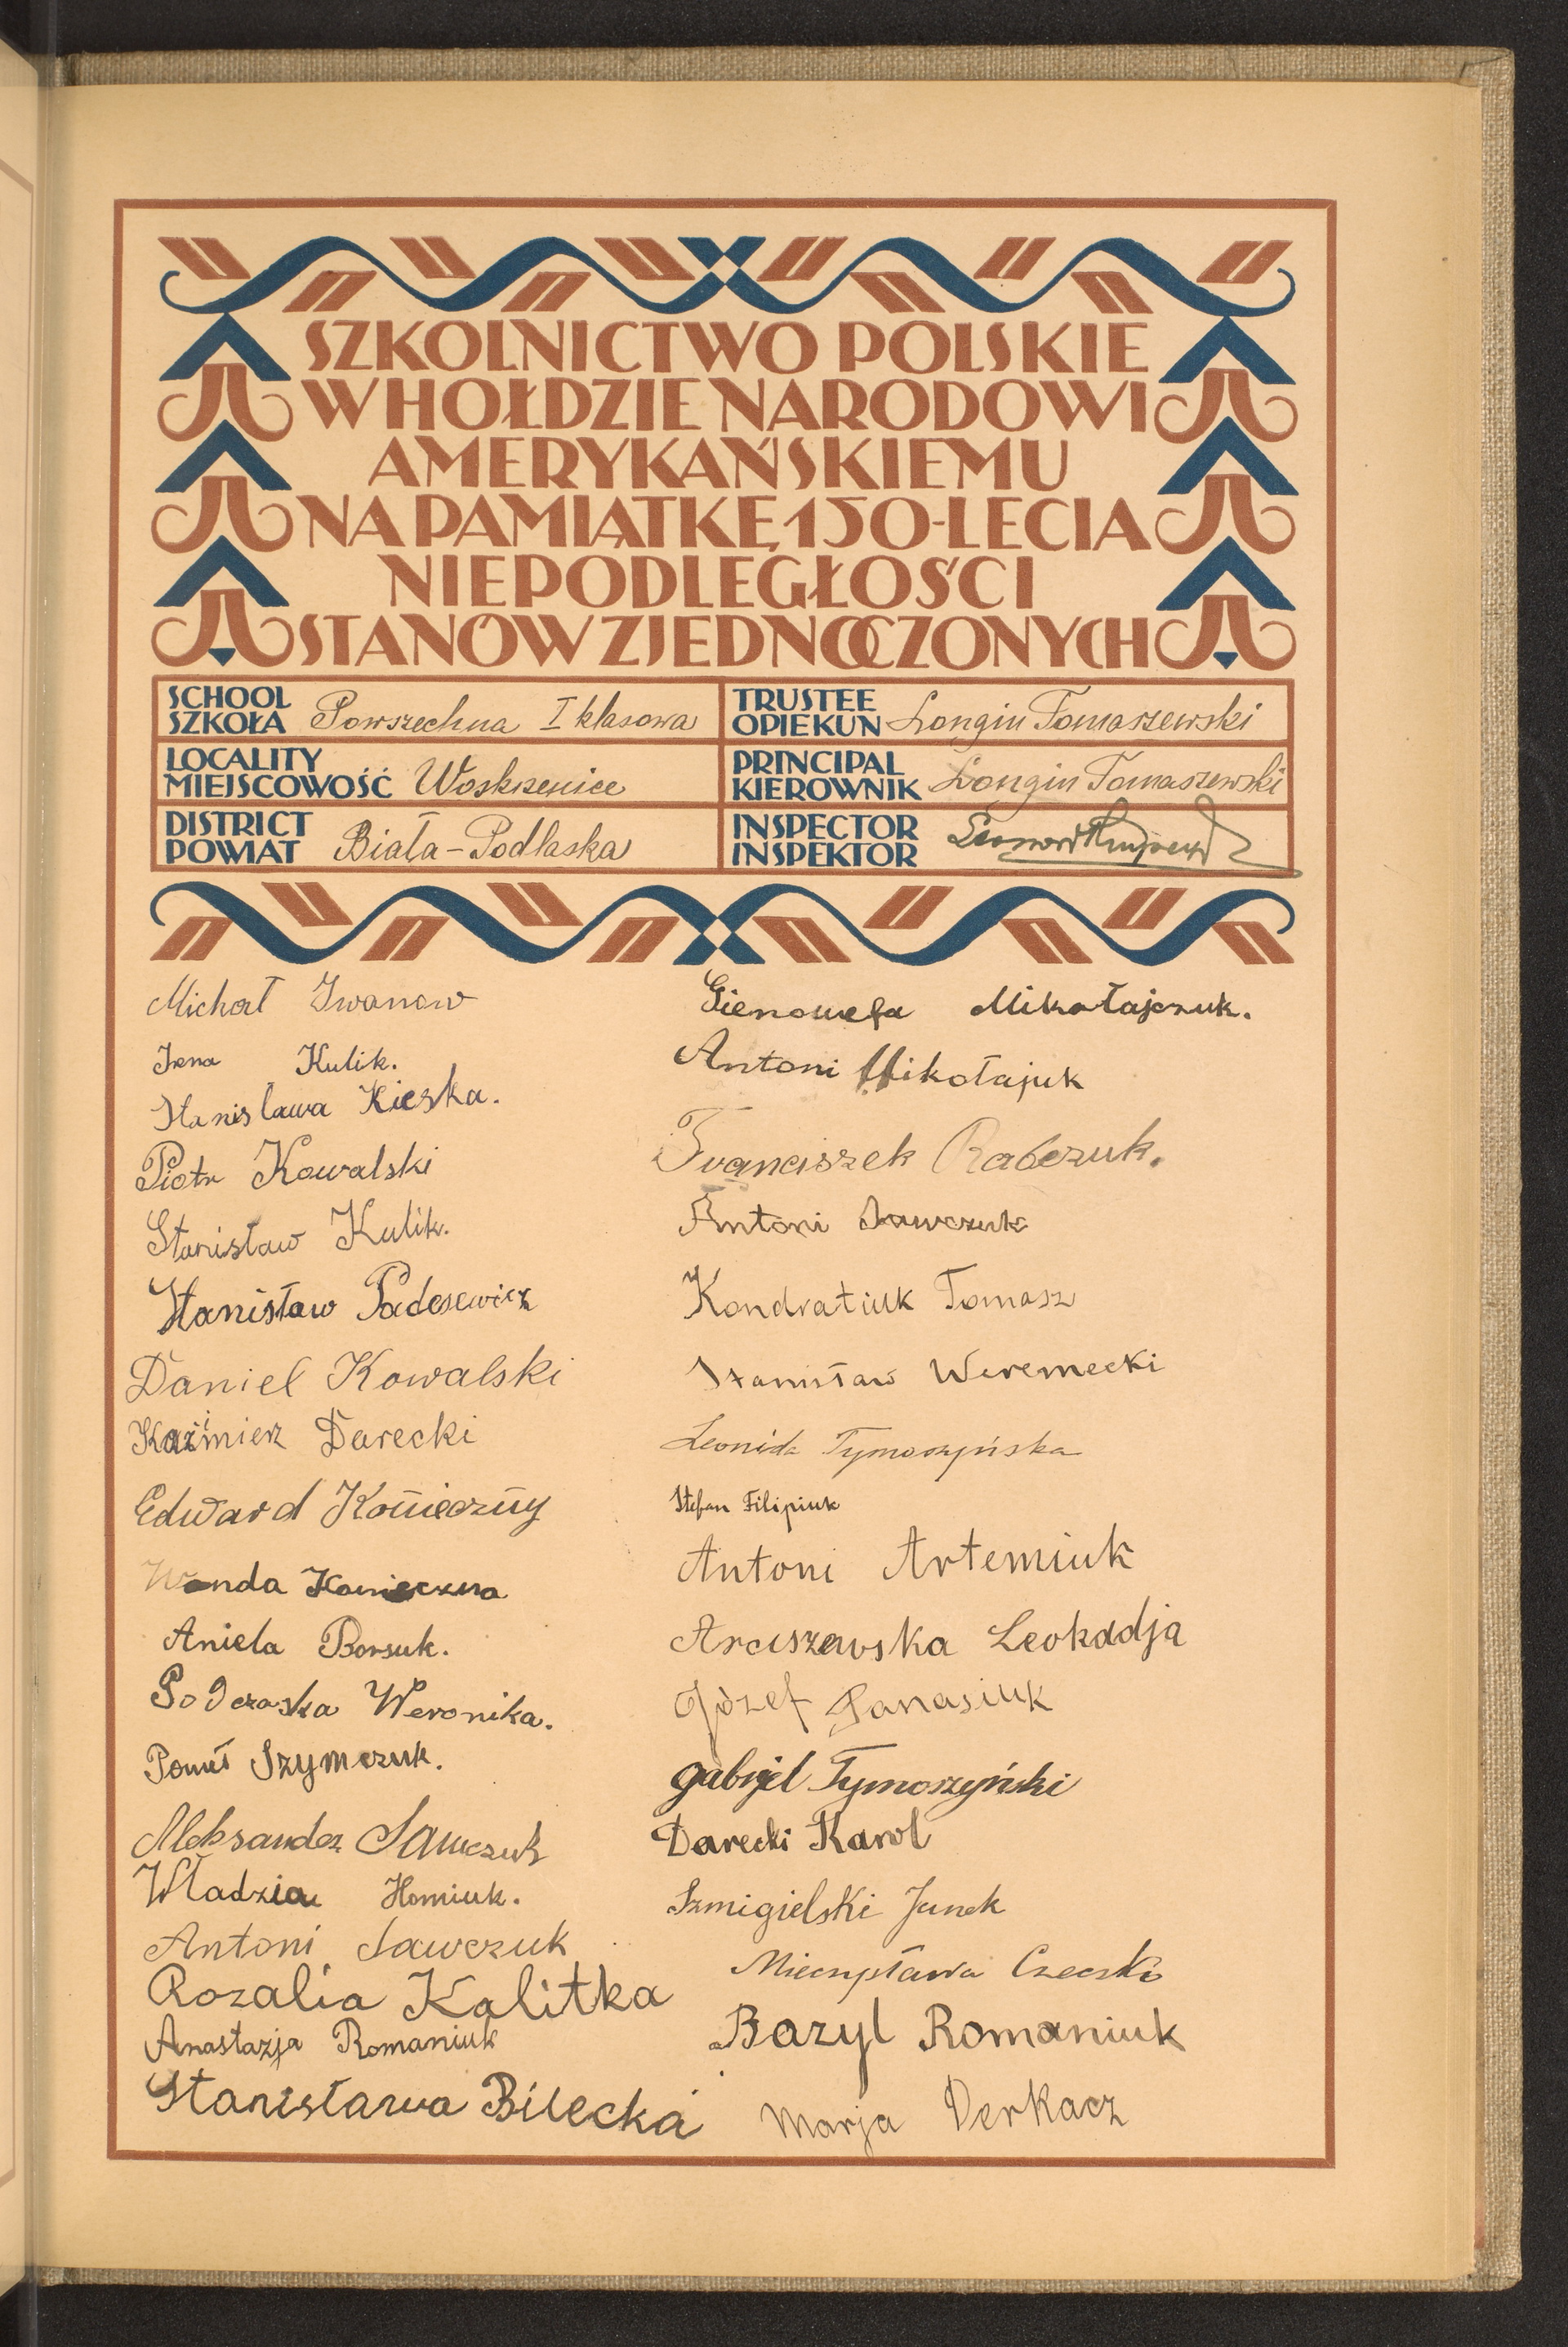 SZKOLNICTWO POLSKIE
W HOŁDZIE NARODOWI
AMERYKAŃSKIEMU
NA PAMIĄTKĘ 150-LECIA
NIEPODLEGŁOŚCI
STANÓW ZJEDNOCZONYCH
SCHOOL
SZKOŁA Powszechna I klasowa
TRUSTEE
OPIEKUN Longin Tomaszewski
LOCALITY
MIEJSCOWOŚĆ Woskrzenice
PRINCIPAL
KIEROWNIK Longin Tomaszewski
DISTRICT
POWIAT Biała-Podlaska
INSPECTOR
INSPEKTOR
Michał Iwanow
Irena Kulik.
Stanisława Kieska.
Piotr Kowalski
Stanisław Kulik.
Stanisław
Daniel Kowalski
Kaźimierz Darecki
Edward Konieczny
Wanda Konieczna
Aniela Borsuk.
Podczaska Weronika.
Szymczuk.
Aleksander Sawczuk
Władzia Homiuk.
Antoni Sawczuk
Rozalia Kalitka
Anastazja Romaniuk
Stanisława Bilecka
Gienowefa Mikołajczuk.
Antoni Mikołajuk
Franciszek Rabczuk.
Antoni Sawczuk
Kondratiuk Tomasz
Stanisław Weremecki
Leonida Tymoszyńska
Stefan Filipiuk
Antoni Artemiuk
Arciszewska Leokadja
Józef Panasiuk
Gabrjel Tymoszyński
Darecki Karol
Szmigielski Janek
Mieczysława
Bazyl Romaniuk
Marja Derkacz